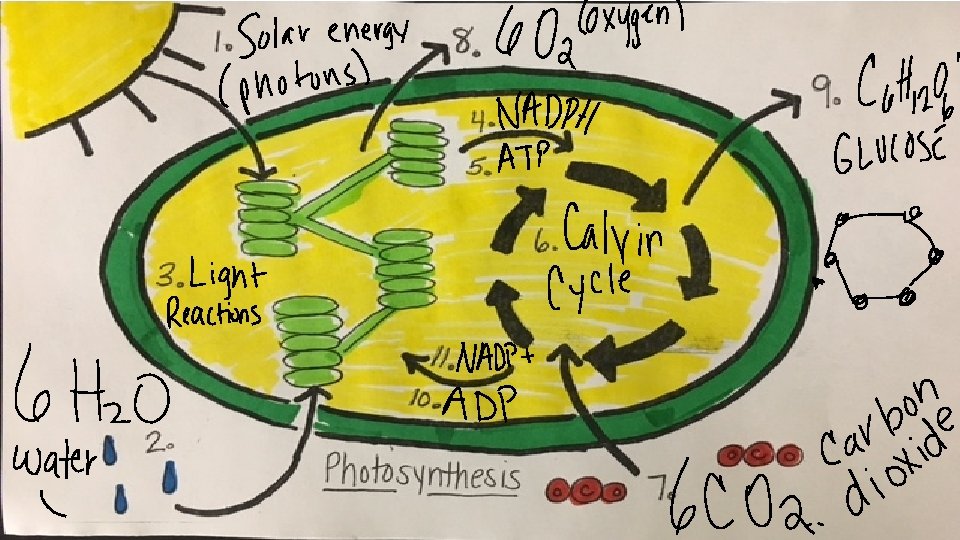 1. Solar energy
(photons)
8. 6 O2 (oxygen)
9. C6H12O6
GLUCOSE
4. NADPH
5. ATP
6. Calvin
Cycle
3. Light
Reactions
11. NADP+
10. ADP
6 H2O
water
2.
Photosynthesis
7. 6CO2.
carbon
dioxide